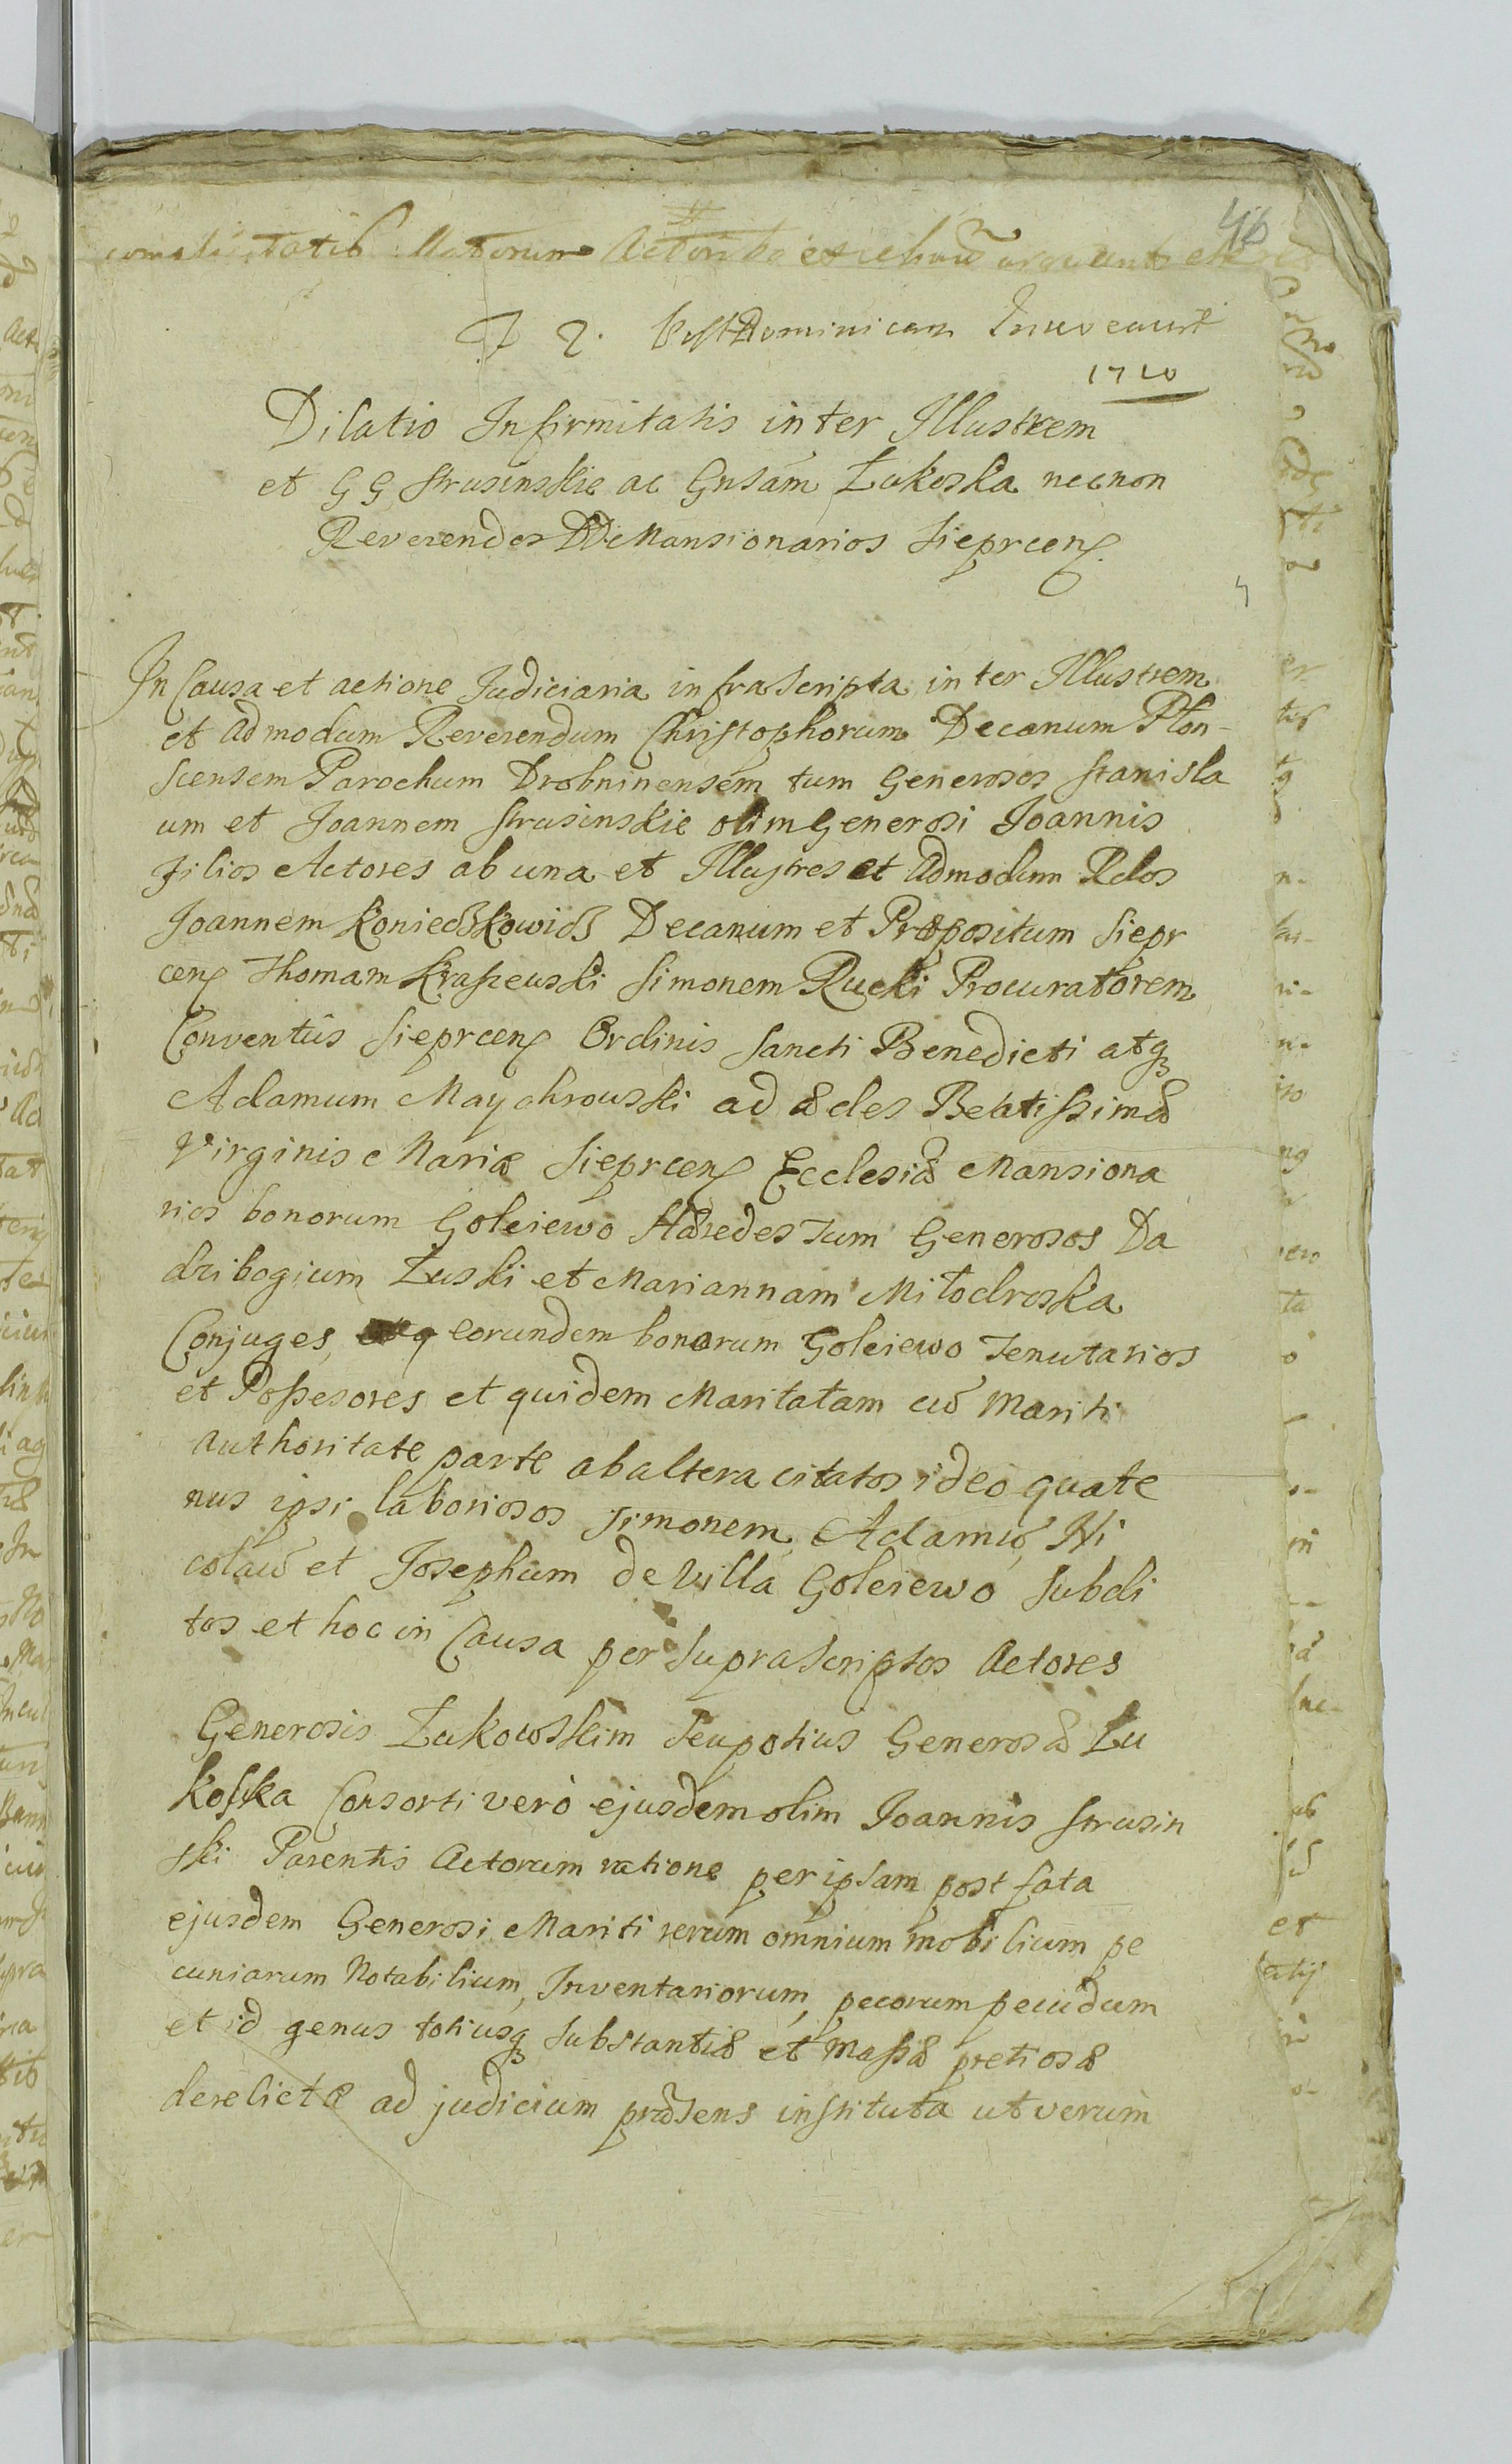 46
Actorum
F 2. Post Dominicam Invocavit
1710
Dilatio Infirmitatis inter Illustrem
et G G Strusinskie ac Gnsam Żukoska necnon
Reverendos DD Mansionarios Sieprcen
In Causa et actione Judiciaria infrascripta inter Illustrem
et Admodum Reverendum Christophorum Decanum Płon-
scensem Parochum Drobninensem tum Generosos Stanisla
um et Joannem Strusinskie olim Generosi Joannis
filios Actores ab una et Illustres et Admodum Rdos
Joannem Konieckowicz Decanum et Præpositum Siepr
cen Thomam Kraszewski Simonem Rucki Procuratorem
Conventus Sieprcen Ordinis Sancti Benedicti atq
Adamum Maychrowski ad ædes Beatissimæ
Virginis Mariæ Sieprcen Ecclesiæ Mansiona
rios bonorum Goleiewo Hæredes tum Generosos Da
dzibogium Łuski et Mariannam Miłodroska
Conjuges, eorundem bonorum Goleiewo Tenutarios
et Possesores et quidem Maritatam cum Mariti
Authoritate parte ab altera citatos ideo quate
nus ipsi laboriosos Simonem Adamum, Ni
colaum et Josephum de Villa Goleiewo Subdi
tos et hoc in Causa per Suprascriptos Actores
Generosis Żukowskim seu potius Generosæ Żu
koska Consorti verò ejusdem olim Joannis Strusin
ski Parentis Actorum ratione per ipsam post fata
ejusdem Generosi Mariti rerum omnium mobilium pe
cuniarum Notabilium, Inventariorum, pecorum pecudum
et id genus totiusq substantiæ et Massæ pretiosæ
derelictæ ad judicium præsens instituta ut verum